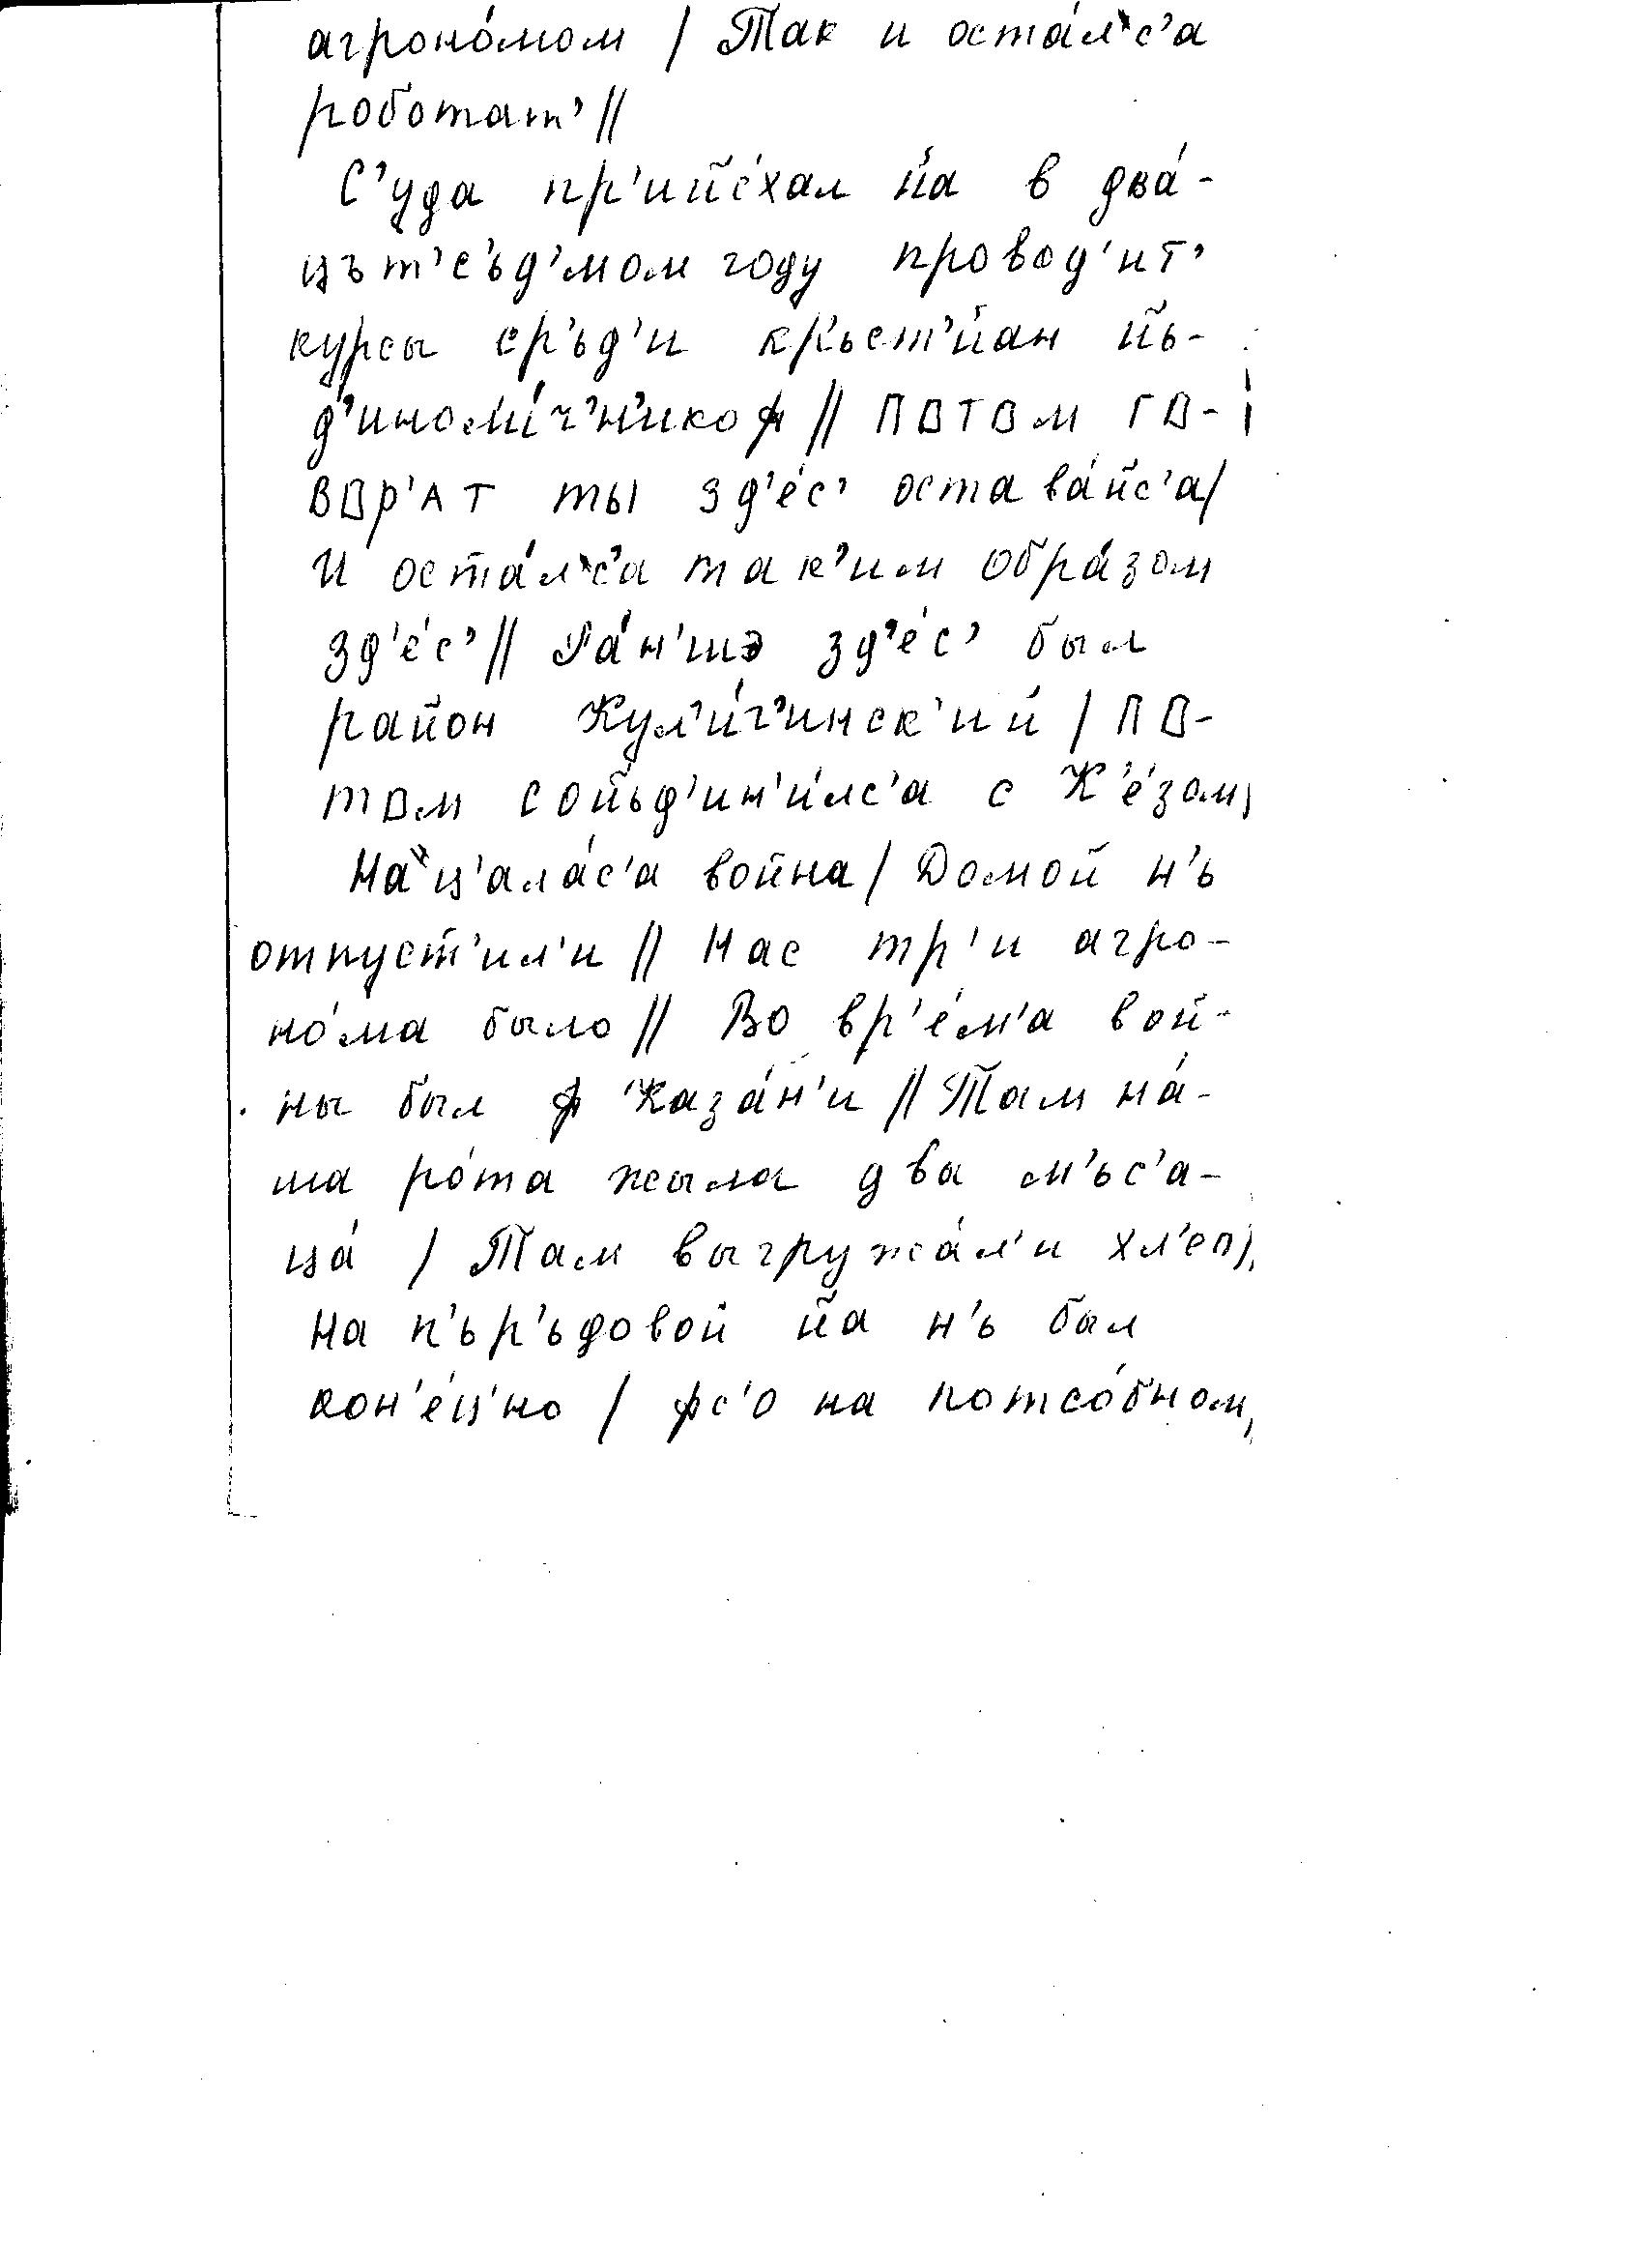 агроно́мом / Так и оста́лс'а
роботат' //
С'уда пр'ийе́хал йа в два́-
цът'с'ъд'мом году провод'ит'
курсы ср'ъд'и кр'ьст'йан йь-
д'инол'и́ч'н'икоф // ПОТОМ ГО-
ВОР'АТ ты зд'е́с' остава́йс'а /
И оста́лс'а так'им обра́зом
зд'е́с' // Ра́н'шэ зд'е́с' был
район Кул'и́г'инск'ий / ПО-
том сойьд'ин'и́лс'а с К'е́зом /
На́ц'ала́с'а война / Домой н'ь
отпуст'ил'и // Нас тр'и агро-
но́ма было // Во вр'е́м'а вой-
ны был ф Каза́н'и // Там на́-
ша ро́та жыла два м'ьс'а-
ца́ / Там выгружа́л'и хл'еп /
На п'ьр'ьдовой йа н'ь был
кон'е́ц'но / фс'о на потсо́бном,